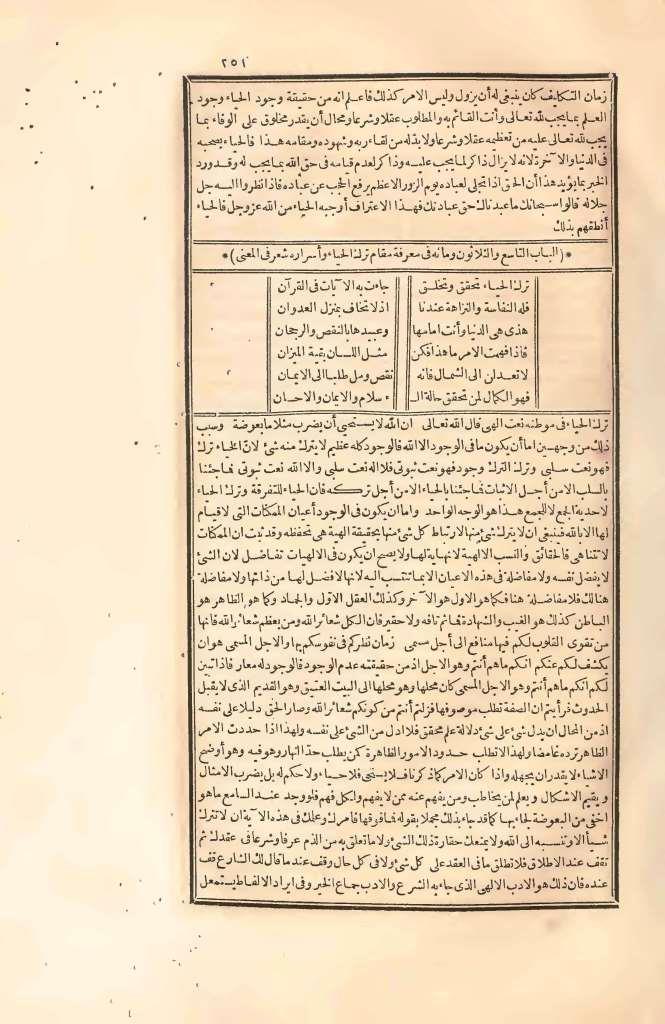 ٢٥١
زمان التكليف كان ينبغي له أن يزول وليس الامر كذلك فاعلم انه من حقيقة وجود الحياء وجود
العلم بما يجب لله تعالى وأنت القائم به والمطلوب عقلا وشرعا ومحال أن يقدر مخلوق على الوفاء بما
يجب لله تعالى عليه من تعظيمه عقلا وشرعا ولا بدّ له من لقاء ربه وشهوده ومقامه هذا فالحياء يصحبه
فى الدنيا والآخرة لانه لا يزال ذاكرا لما يجب عليه وذاكرا لعدم قيامه فى حق الله بما يجب له وقد ورد
الخبر بما يؤيد هذا أن الحق اذا تجلى لعباده يوم الزور الاعظم يرفع الحجب عن عباده فاذا نظروا اليه جل
جلاله قالوا سبحانك ما عبدناك حق عبادتك فهذا الاعتراف أوجبه الحياء من الله عز وجل فالحياء
أنطقهم بذلك
* (الباب التاسع والثلاثون ومائة فى معرفة مقام ترك الحياء وأسراره شعر فى المعنى) *
ترك الحياء تحقق وتخلق جاءت به الآيات فى القرآن
فله النفاسة والنزاهة عندنا اذ لا تخاف بمنزل العدوان
هذى هى الدنيا وأنت امامها وعبيدها بالنقص والرجحان
فاذا فهمت الامر ما هذا فكن مثل اللسان بقية الميزان
لا تعدلن الى الشمال فانه نقص ومل طلبا الى الايمان
فهو الكمال لمن تحقق حالة الـ ـاسلام والايمان والاحسان
ترك الحياء فى موطنه نعت الهى قال الله تعالى ان الله لا يستحيى أن يضرب مثلا ما بعوضة وسبب
ذلك من وجهين اما أن يكون ما فى الوجود الا الله فالوجود كله عظيم لا يترك منه شئ لانّ الحياء ترك
فهو نعت سلبى وترك الترك وجود فهو نعت ثبوتى فلا اله نعت سلبى والا الله نعت ثبوتى فما جئنا
بالسلب الا من أجل الاثبات فما جئنا بالحياء الا من أجل تركه فان الحياء للتفرقة وترك الحياء
لاحدية الجمع لا للجمع هذا هو الوجه الواحد واما ان يكون فى الوجود أعيان الممكنات التى لا قيام
لها الا بالله فينبغى ان لا يترك شئ منها لارتباط كل شئ منها بحقيقة الهية هى تحفظه وقد ثبت ان الممكنات
لا تتناهى فالحقائق والنسب الالهية لا نهاية لها ولا يصح ان يكون فى الالهيات تفاضل لان الشئ
لا يفضل نفسه ولا مفاضلة فى هذه الاعيان الا بما تنتسب اليه لانها لافضل لها من ذاتها ولا مفاضلة
هنالك فلا مفاضلة هنا فكما هو الاول هو الآخر وكذلك العقل الاوّل والجماد وكما هو الظاهر هو
الباطن كذلك هو الغيب والشهادة فما ثم تافه ولا حقير فان الكل شعائر الله ومن يعظم شعائر الله فانها
من تقوى القلوب لكم فيها منافع الى أجل مسمى زمان نظركم فى نفوسكم بها والاجل المسمى هو ان
يكشف لكم عنكم انكم ما هم أنتم وهو الاجل اذ من حقيقته عدم الوجود فالوجود له معار فاذا تبين
لكم انكم ما هم أنتم وهو الاجل المسمى كان محلها وهو محلها الى البيت العتيق وهو القديم الذى لا يقبل
الحدوث فرأيتم ان الصفة تطلب موصوفها فزلتم أنتم من كونكم شعائر الله وصار الحق دليلا على نفسه
اذ من المحال ان يدل شئ على شئ دلالة علم محقق فلا ادل من الشئ على نفسه ولهذا اذا حددت الامر
الظاهر ترده غامضا ولهذا لا تطلب حدود الامور الظاهرة كمن يطلب حدّ النهار وهو فيه وهو أوضح
الاشياء لا يقدر ان يجهله واذا كان الامر كما ذكرناه فلا يستحى فلا حياء ولا حكم له بل يضرب الامثال
ويقيم الاشكال ويعلم لمن يخاطب ومن يفهم عنه ممن لا يفهم ولكل فهم فلو وجد عند السامع ما هو
اخفى من البعوضة لجاء بها كما قد جاء بذلك مجملا بقوله فما فوقها فامرك وعلمك فى هذه الآية ان لا تترك
شيأ الا وتنسبه الى الله ولا يمنعك حقارة ذلك الشئ ولا ما تعلق به من الذم عرفا وشرعا فى عقدك ثم
تقف عند الاطلاق فلا تطلق ما فى العقد على كل شئ ولا فى كل حال وقف عند ما قال لك الشارع قف
عنده فان ذلك هو الادب الالهى الذى جاء به الشرع والادب جماع الخير وفى ايراد الالفاظ يستعمل